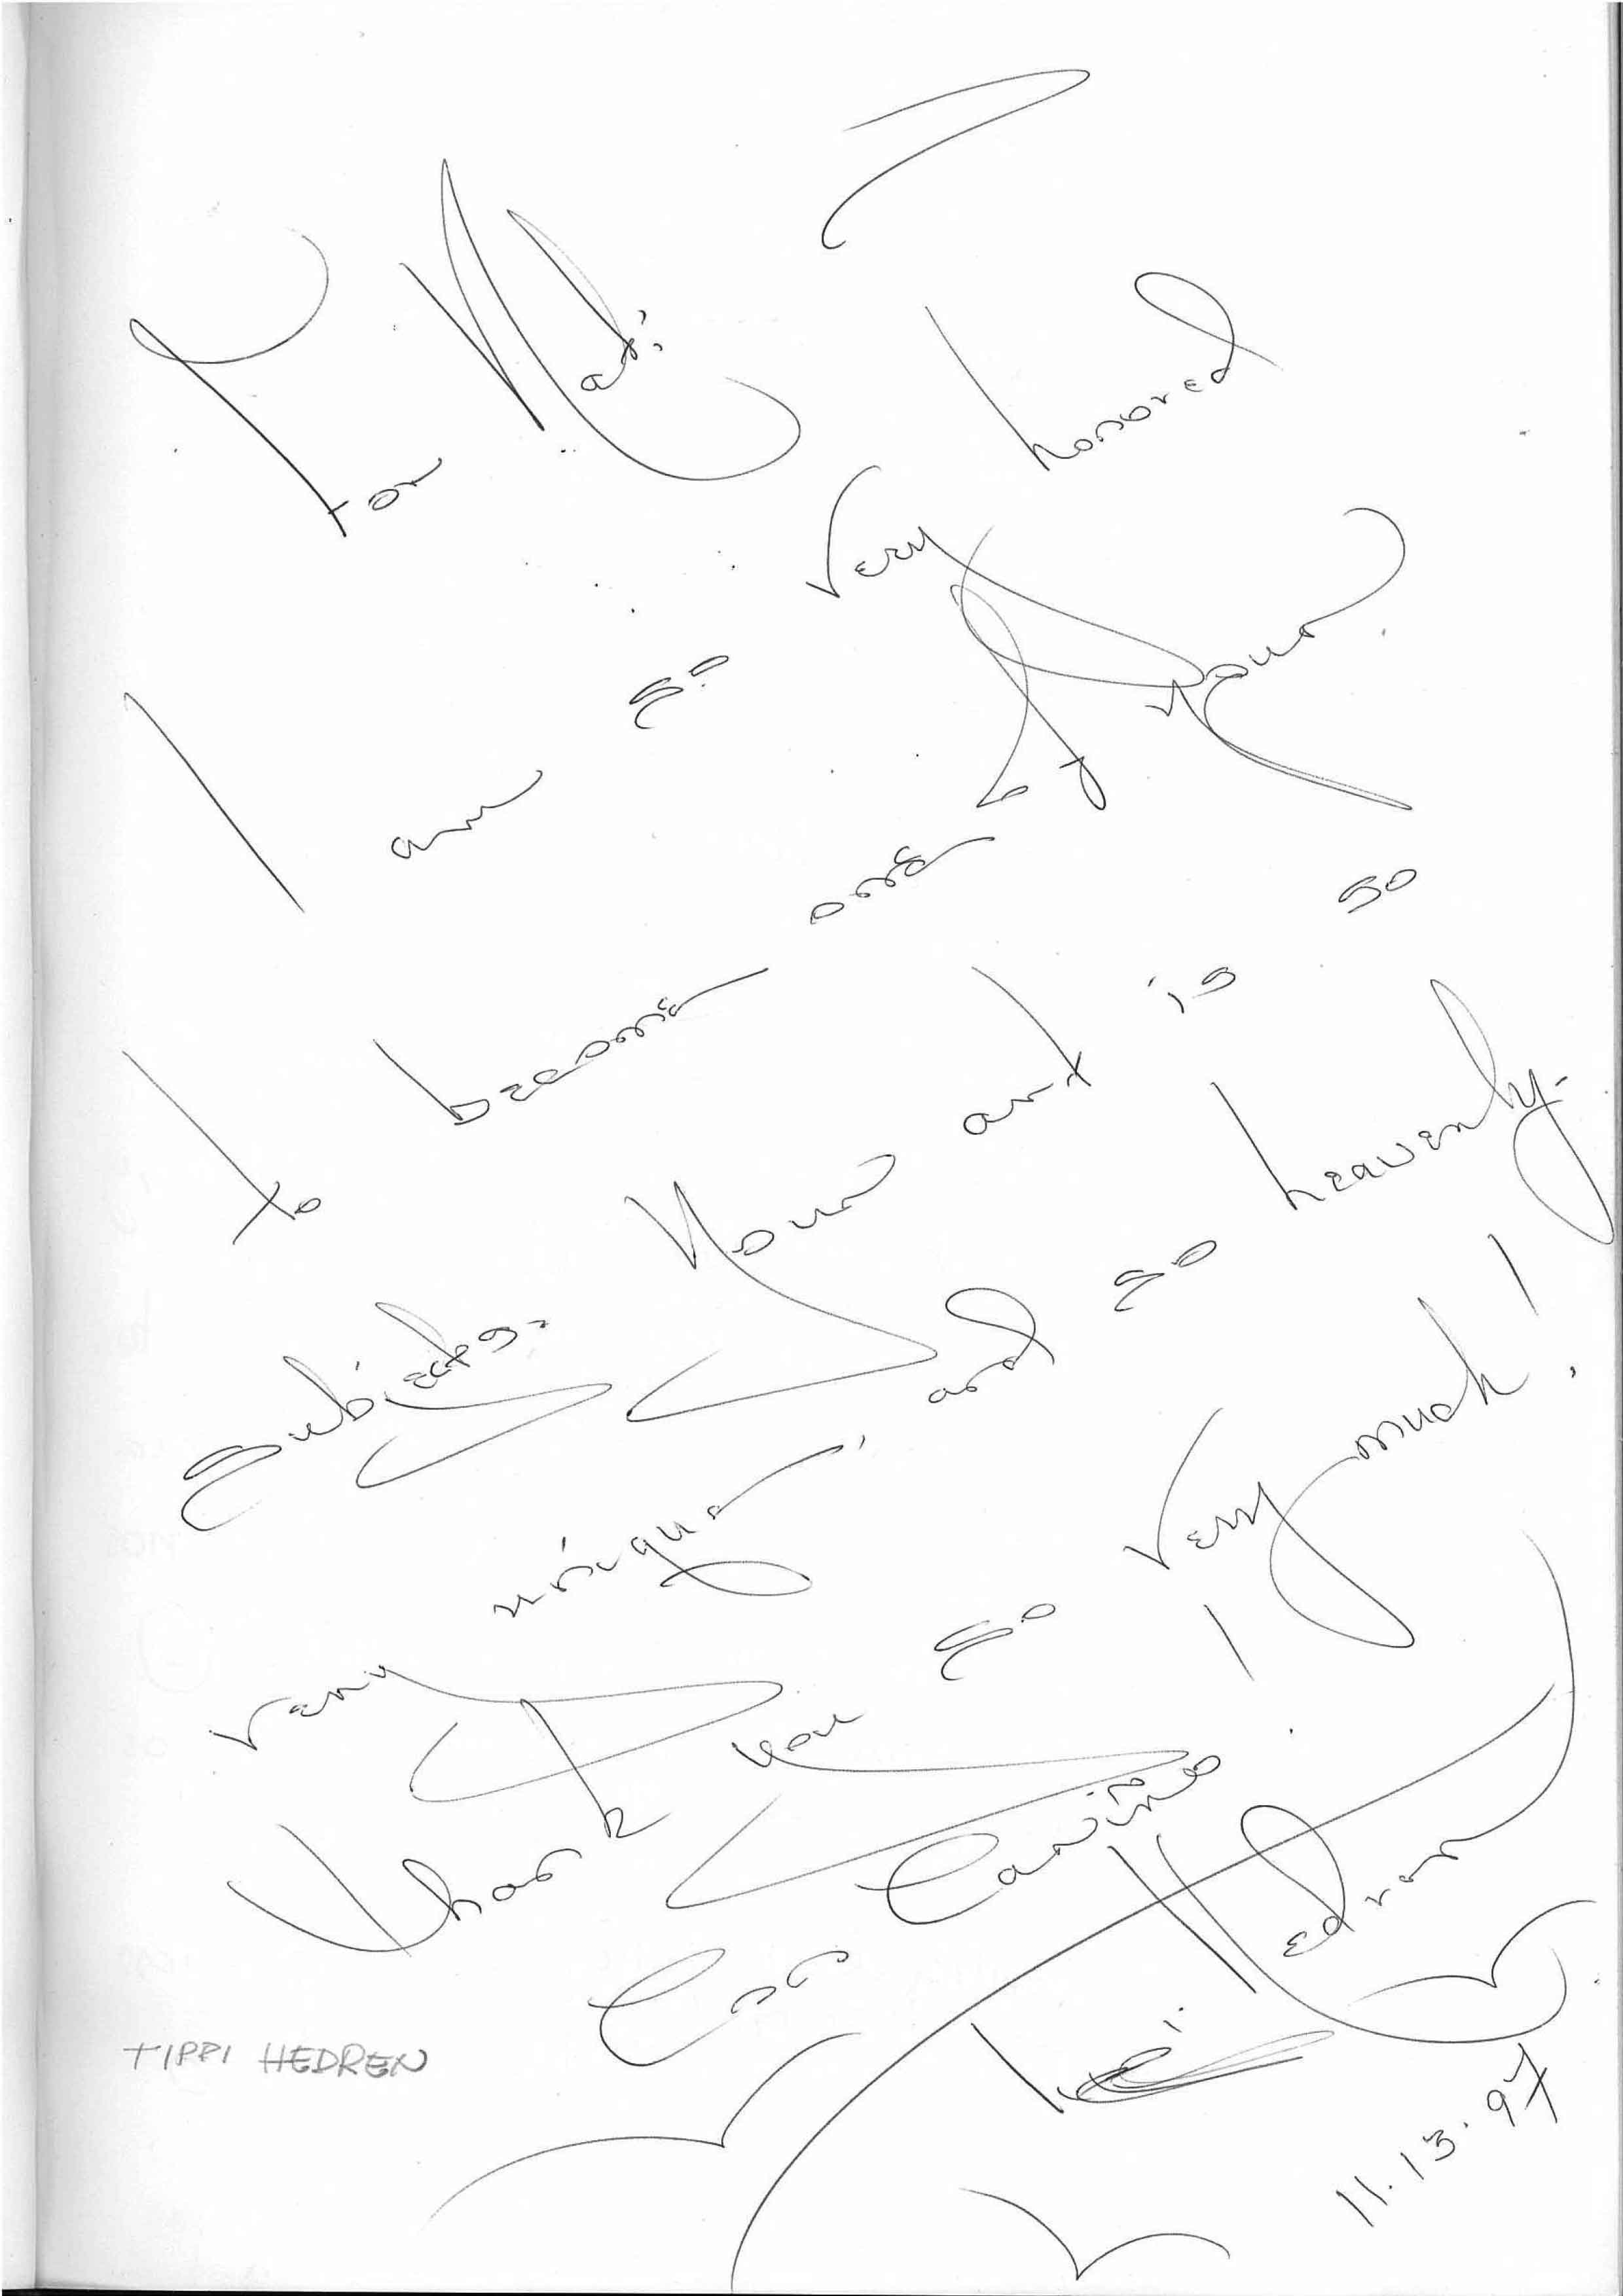 For Nati:
I am so very honored
to become one of your
subjects. Your art is so
very unique, and so heavenly.
Thank you so very much!
Con Cariño!
Tippi Hedren
11.13.97
TIPPI HEDREN